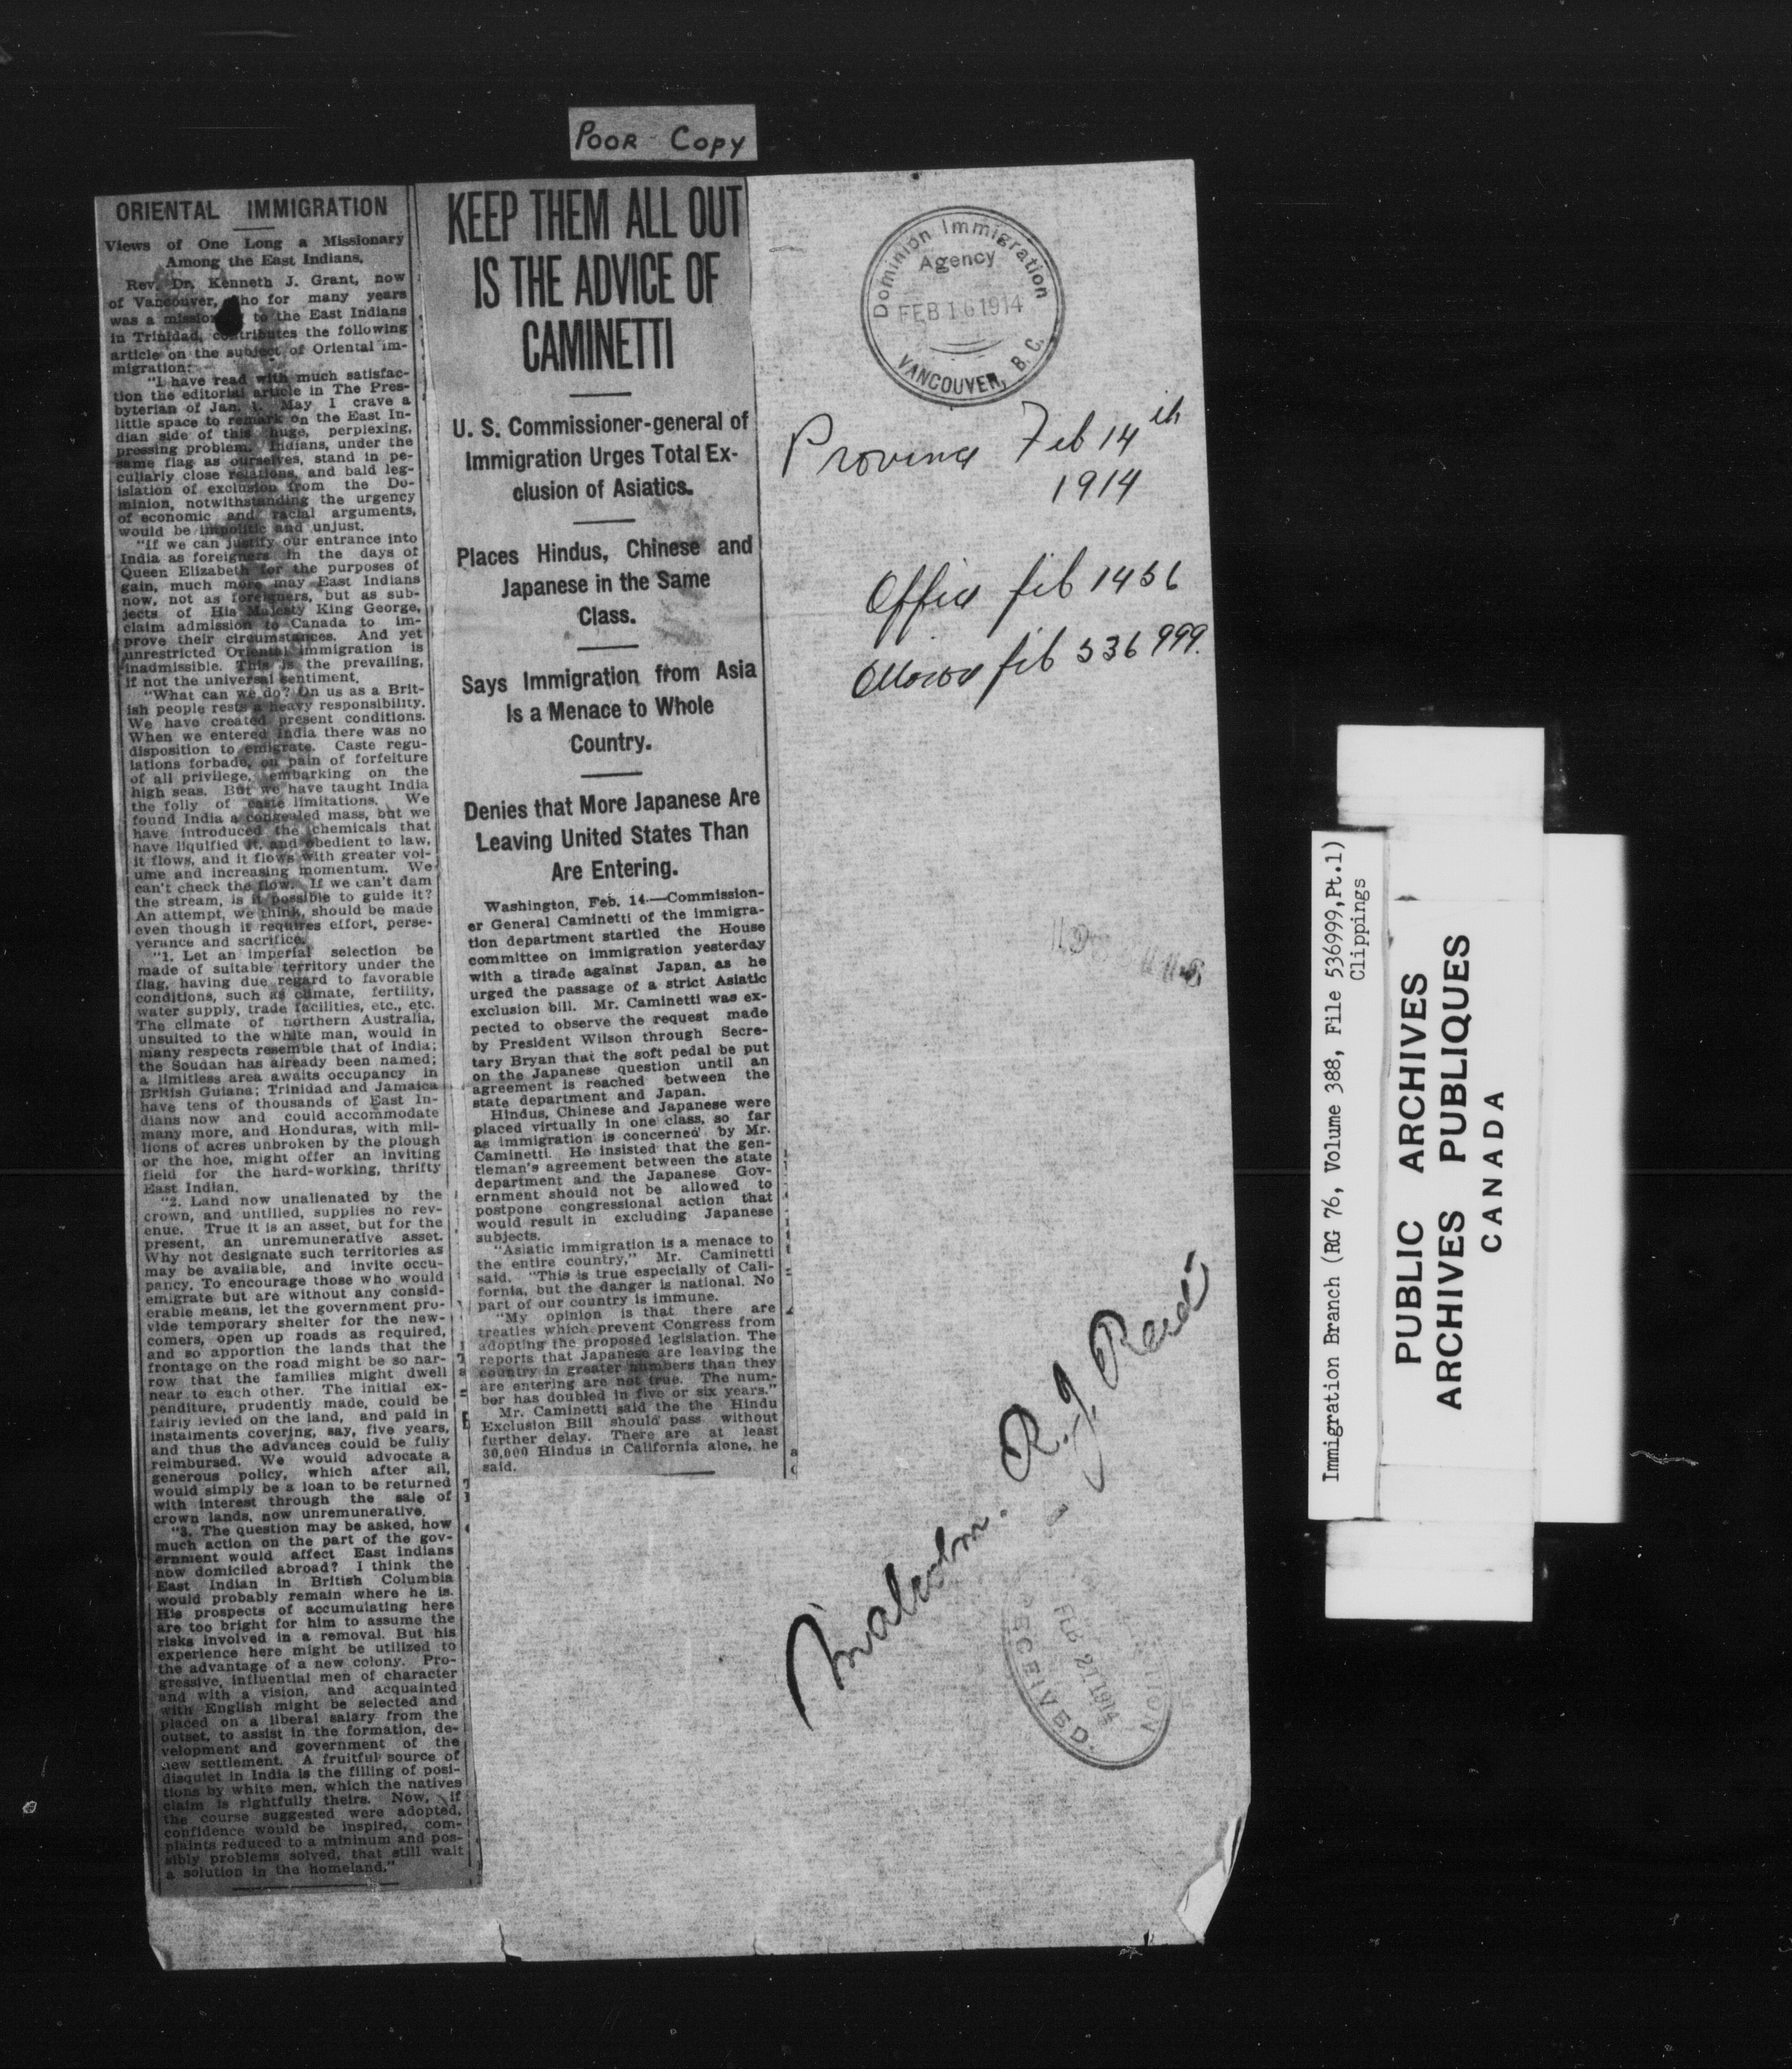 POOR COPY
ORIENTAL IMMIGRATION
Views of One Long a Missionary
Among the East Indians.
Rev. Dr. Kenneth J. Grant, now
of Vancouver, who for many years
was a mission to the East Indians
in Trinidad, contributes the following
article on the subject of Oriental im-
migration:
"I have read with much satisfac-
tion the editorial article in The Pres-
byterian of Jan. 1. May I crave a
little space to remark on the East In-
dian side of this huge, perplexing,
pressing problem. Indians, under the
same flag as ourselves, stand in pe-
culiarly close relations, and bald leg-
islation of exclusion from the Do-
minion, notwithstanding the urgency
of economic and racial arguments,
would be impolitic and unjust.
"If we can justify our entrance into
India as foreigners in the days of
Queen Elizabeth for the purposes of
gain, much more may East Indians
now, not as foreigners, but as sub-
jects of His Majesty King George,
claim admission to Canada to im-
prove their circumstances. And yet
unrestricted Oriental immigration is
inadmissible. This is the prevailing,
if not the universal sentiment.
"What can we do? On us as a Brit-
ish people rests a heavy responsibility.
We have created present conditions.
When we entered India there was no
disposition to emigrate. Caste regu-
lations forbade, on pain of forfeiture
of all privilege, embarking on the
high seas. But we have taught India
the folly of caste limitations. We
found India a congealed mass, but we
have introduced the chemicals that
have liquified it, and obedient to law,
it flows, and it flows with greater vol-
ume and increasing momentum. We
can't check the flow. If we can't dam
the stream, is it possible to guide it?
An attempt, we think, should be made
even though it requires effort, perse-
verance and sacrifice.
"1. Let an imperial selection be
made of suitable territory under the
flag, having due regard to favorable
conditions, such as climate, fertility,
water supply, trade facilities, etc., etc.
The climate of northern Australia,
unsuited to the white man, would in
many respects resemble that of India;
the Soudan has already been named;
a limitless area awaits occupancy in
British Guiana; Trinidad and Jamaica
have tens of thousands of East In-
dians now and could accommodate
many more, and Honduras, with mil-
lions of acres unbroken by the plough
or the hoe, might offer an inviting
field for the hard-working, thrifty
East Indian.
"2. Land now unalienated by the
crown, and untilled, supplies no rev-
enue. True it is an asset, but for the
present, an unremunerative asset.
Why not designate such territories as
may be available, and invite occu-
pancy. To encourage those who would
emigrate but are without any consid-
erable means, let the government pro-
vide temporary shelter for the new-
comers, open up roads as required,
and so apportion the lands that the
frontage on the road might be so nar-
row that the families might dwell
near to each other. The initial ex-
penditure, prudently made, could be
fairly levied on the land, and paid in
instalments covering, say, five years,
and thus the advances could be fully
reimbursed. We would advocate a
generous policy, which after all,
would simply be a loan to be returned
with interest through the sale of
crown lands, now unremunerative.
"3. The question may be asked, how
much action on the part of the gov-
ernment would affect East Indians
now domiciled abroad? I think the
East Indian in British Columbia
would probably remain where he is.
His prospects of accumulating here
are too bright for him to assume the
risks involved in a removal. But his
experience here might be utilized to
the advantage of a new colony. Pro-
gressive, influential men of character
and with a vision, and acquainted
with English might be selected and
placed on a liberal salary from the
outset, to assist in the formation, de-
velopment and government of the
new settlement. A fruitful source of
disquiet in India is the filling of posi-
tions by white men, which the natives
claim is rightfully theirs. Now, if
the course suggested were adopted,
confidence would be inspired, com-
plaints reduced to a mininum and pos-
sibly problems solved, that still wait
a solution in the homeland."
KEEP THEM ALL OUT
IS THE ADVICE OF
CAMINETTI
U. S. Commissioner-general of
Immigration Urges Total Ex-
clusion of Asiatics.
Places Hindus, Chinese and
Japanese in the Same
Class.
Says Immigration from Asia
Is a Menace to Whole
Country.
Denies that More Japanese Are
Leaving United States Than
Are Entering.
Washington, Feb. 14.—Commission-
er General Caminetti of the immigra-
tion department startled the House
committee on immigration yesterday
with a tirade against Japan, as he
urged the passage of a strict Asiatic
exclusion bill. Mr. Caminetti was ex-
pected to observe the request made
by President Wilson through Secre-
tary Bryan that the soft pedal be put
on the Japanese question until an
agreement is reached between the
state department and Japan.
Hindus, Chinese and Japanese were
placed virtually in one class, so far
as immigration is concerned by Mr.
Caminetti. He insisted that the gen-
tleman's agreement between the state
department and the Japanese Gov-
ernment should not be allowed to
postpone congressional action that
would result in excluding Japanese
subjects.
"Asiatic immigration is a menace to
the entire country," Mr. Caminetti
said. "This is true especially of Cali-
fornia, but the danger is national. No
part of our country is immune.
"My opinion is that there are
treaties which prevent Congress from
adopting the proposed legislation. The
reports that Japanese are leaving the
country in greater numbers than they
are entering are not true. The num-
ber has doubled in five or six years."
Mr. Caminetti said the the Hindu
Exclusion Bill should pass without
further delay. There are at least
30,000 Hindus in California alone, he
said.
Dominion Immigration
Agency
FEB 16 1914
VANCOUVER, B. C.
Province Feb 14th
1914
Office file 1436
Ottawa file 536999.
Malcolm. R. J. Reid
RECEIVED.
FEB 21 1914
Immigration Branch (RG 76, Volume 388, File 536999,Pt.1)
Clippings
PUBLIC ARCHIVES
ARCHIVES PUBLIQUES
CANADA